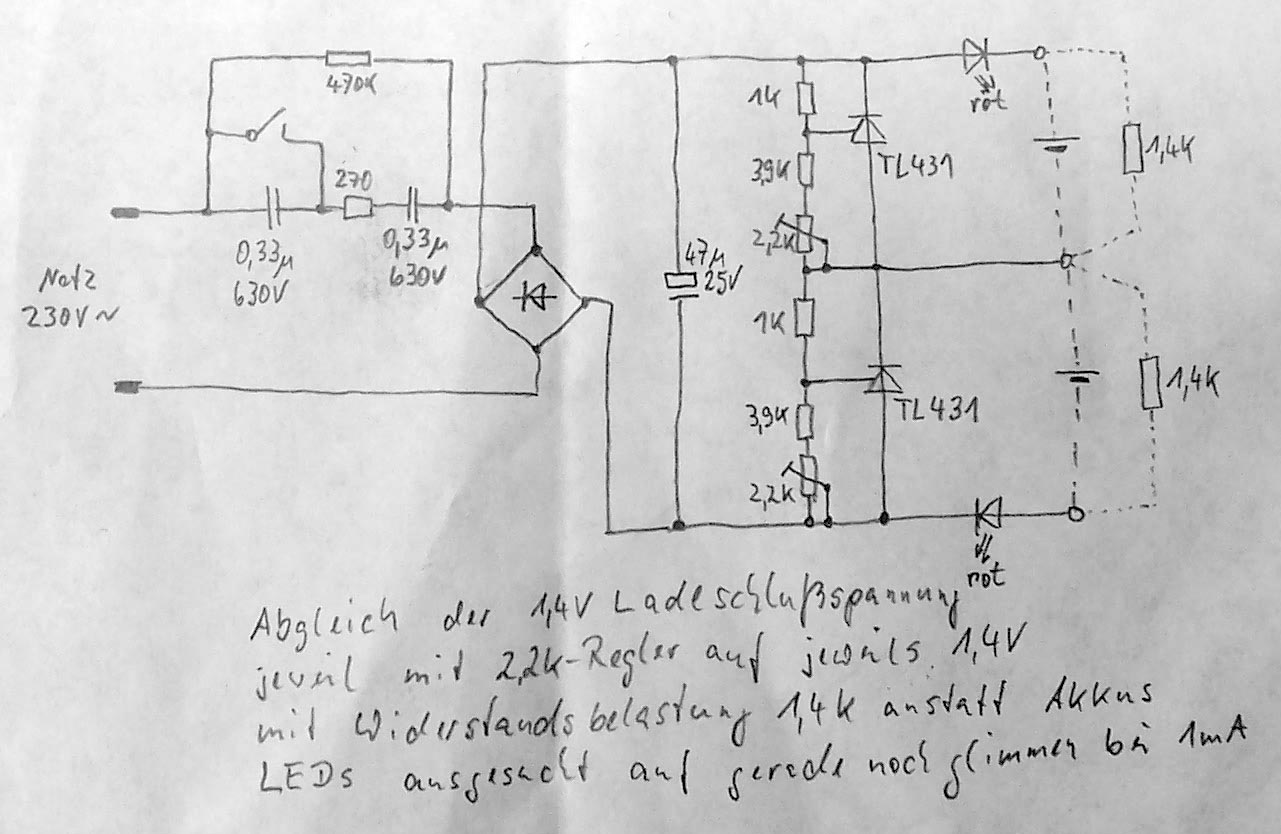 470K
rot
1K
1,4K
TL431
3,9K
270
2,2K
0,33µ
630V
0,33µ
630V
47µ
25V
Netz
230V~
1K
1,4K
3,9K
TL431
2,2K
rot
Abgleich der 1,4V Ladeschlußspannung
jeweil mit 2,2k-Regler auf jeweils 1,4V
mit Widerstandsbelastung 1,4k anstatt Akkus
LEDs ausgesucht auf gerade noch glimmen bei 1mA